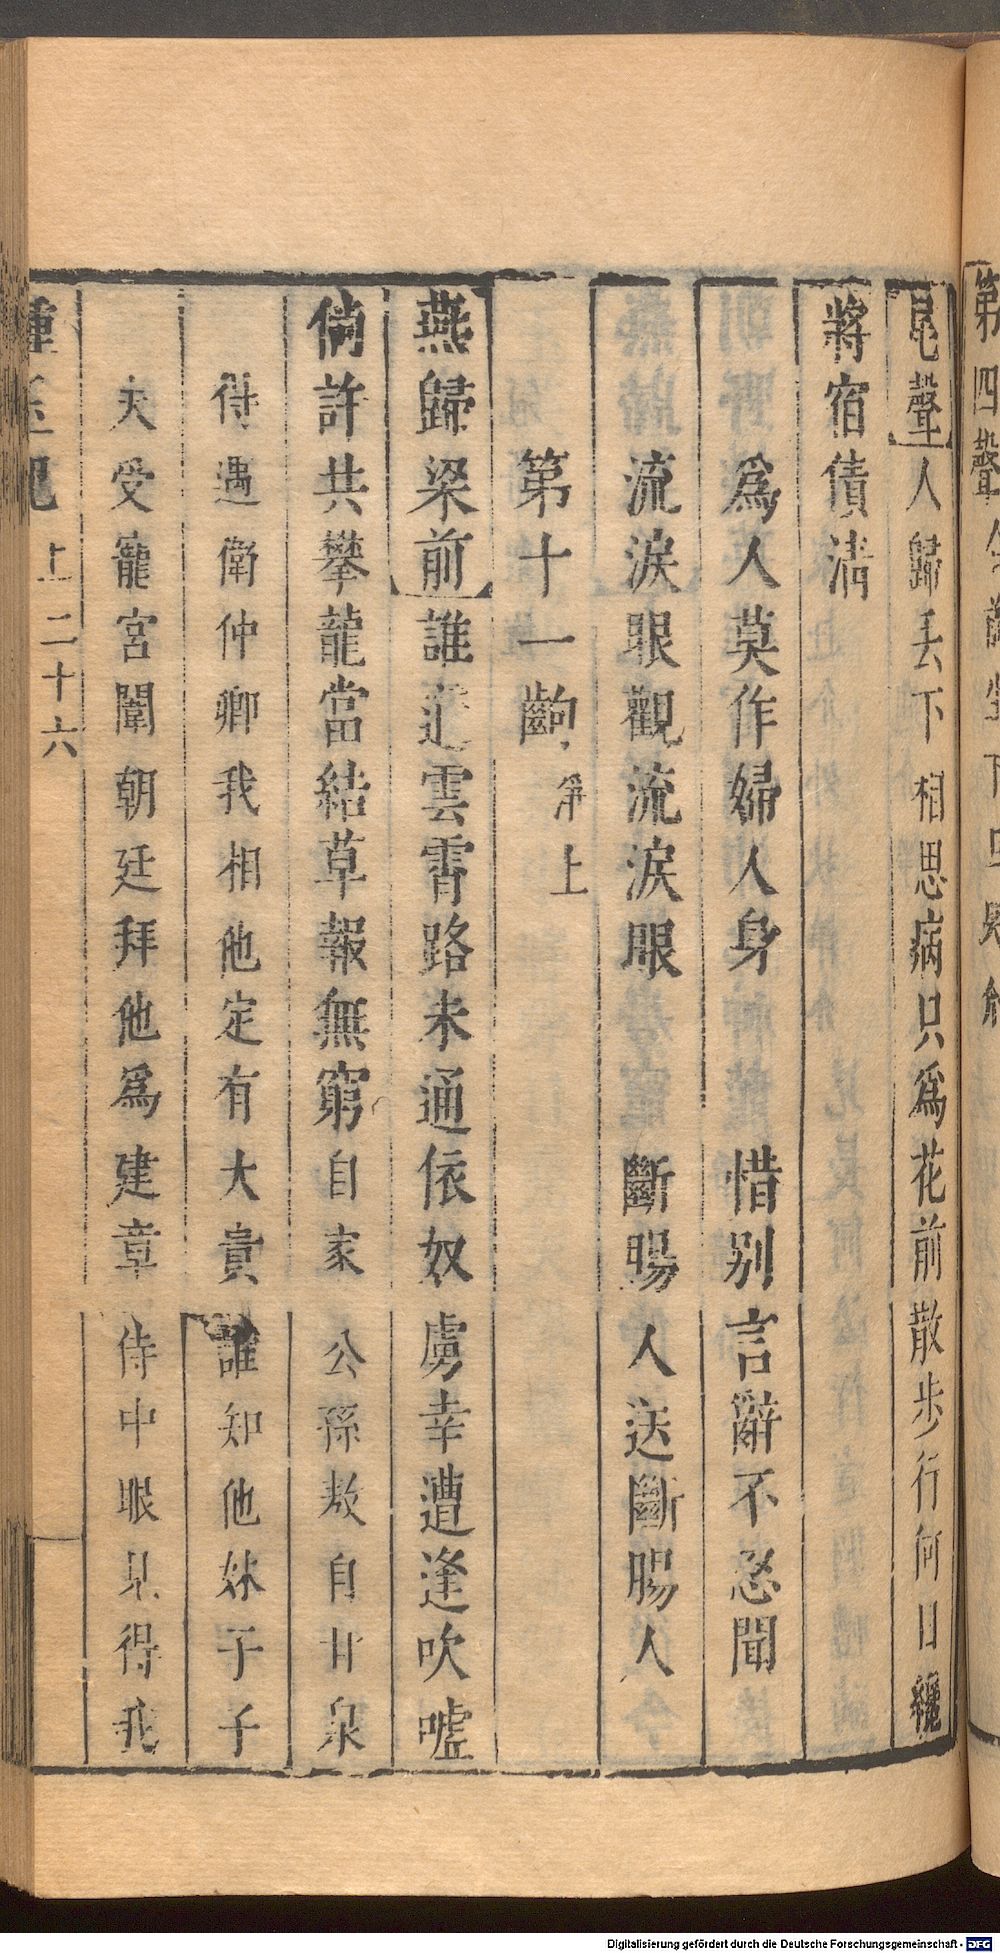 尾聲人歸去下相思病只爲花前散步行何日纔
將宿債清
爲人莫作婦人身 惜别言辭不忍聞
流淚眼觀流淚眼 斷腸人送斷腸人
第十一齣 淨上
燕歸梁前誰道雲霄路未通依奴虜幸遭逢吹噓
倘許共攀龍當結草報無窮自家公孫敖自甘泉
得遇衛仲卿我相他定有大貴誰知他妹子子
夫受寵宮闈朝廷拜他爲建章侍中眼見得我
上 二十六
第四聲
Digitalisierung gefördert durch die Deutsche Forschungsgemeinschaft - DFG